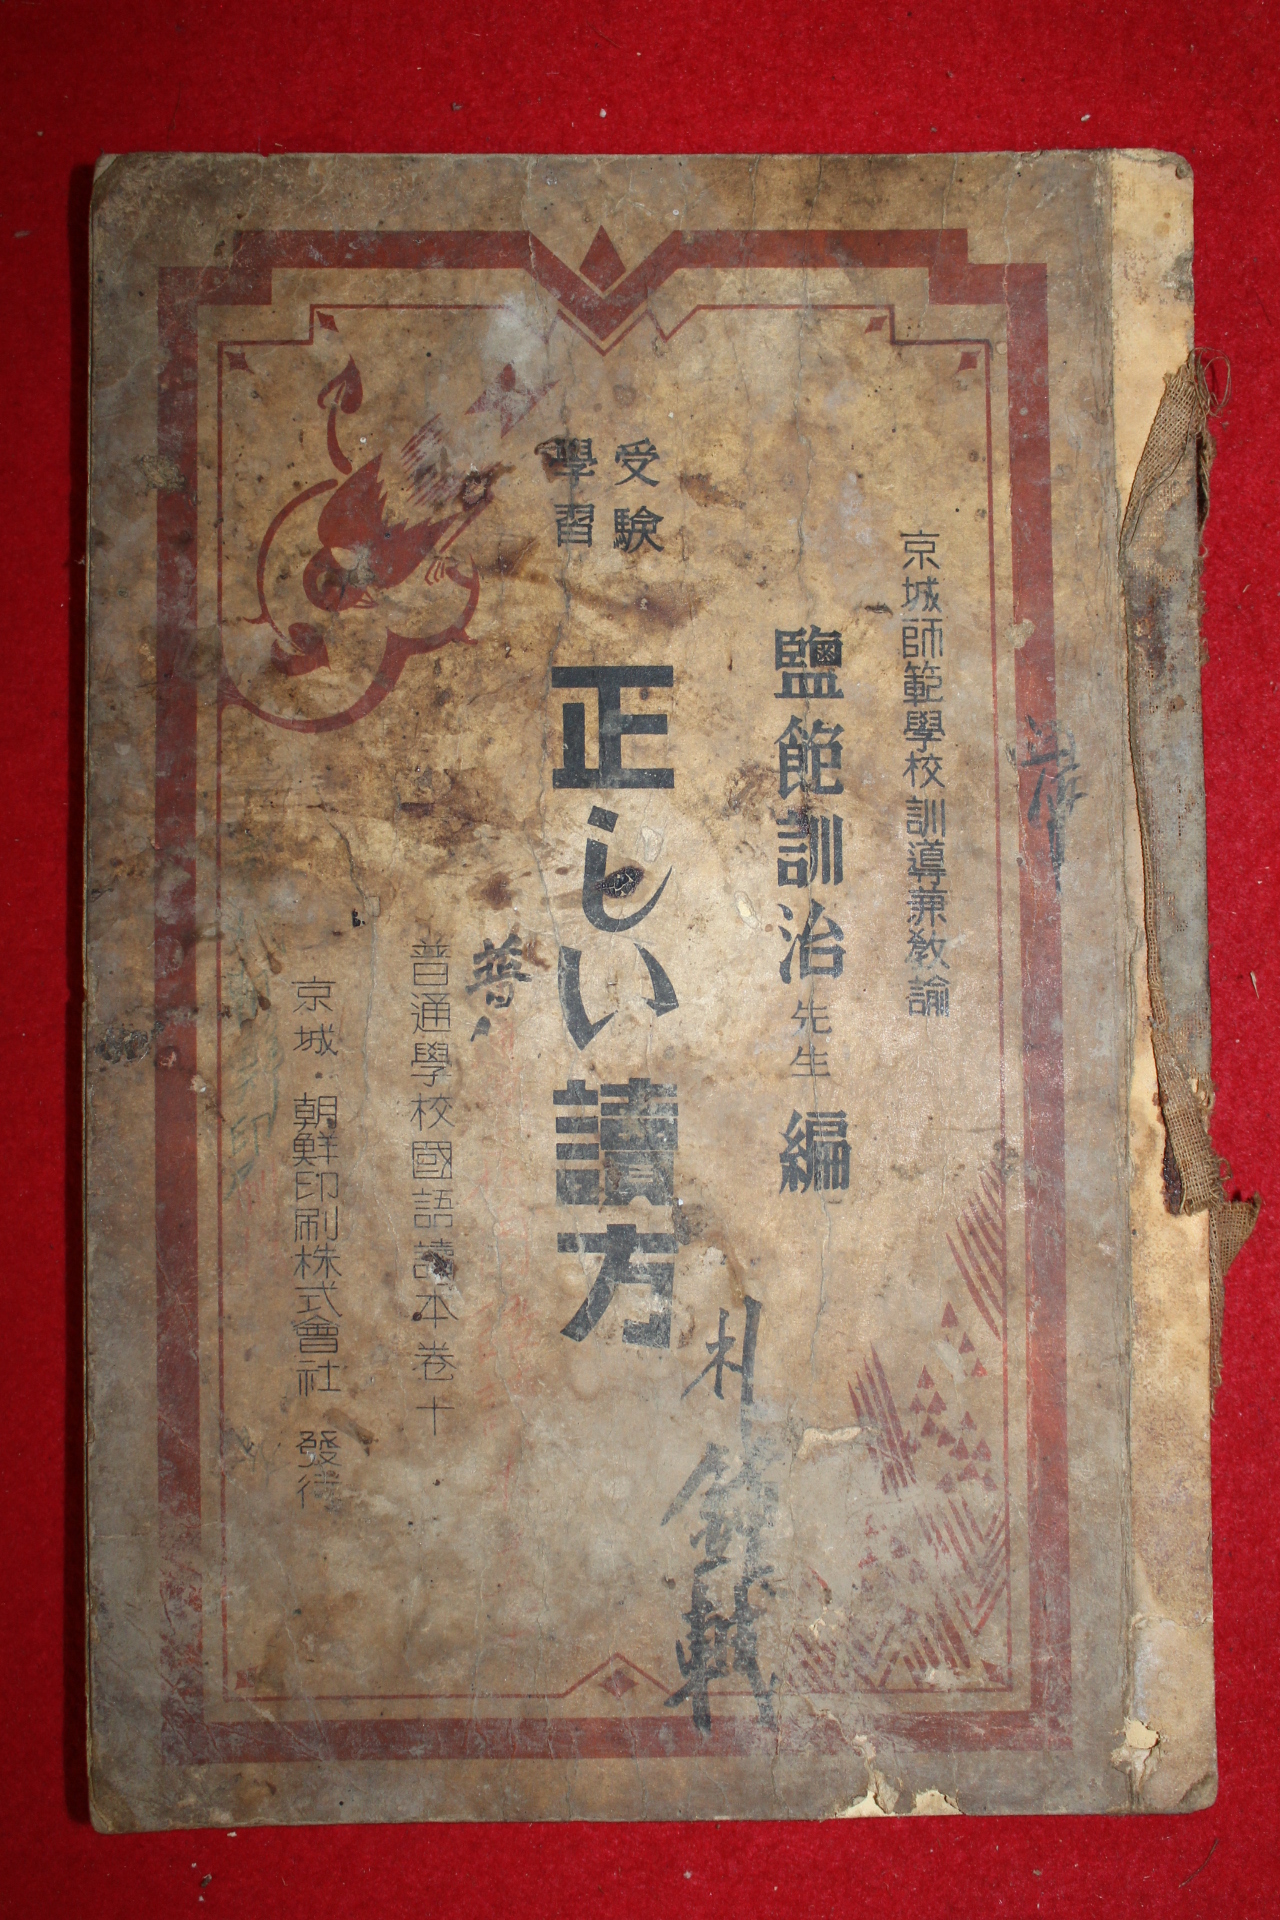 京城師範學校訓導兼敎諭
鹽飽訓治先生 編
受驗
學習
正しい讀方
普通學校國語讀本卷十
京城・朝鮮印刷株式會社 發行
朴